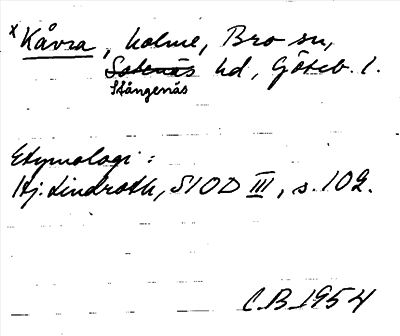 x Kåvra, holme, Bro sn,
Sotenäs hd, Göteb. l.
Stångenäs
Etymologi:
Hj. Lindroth, SIOD III, s. 102.
C.B. 1954